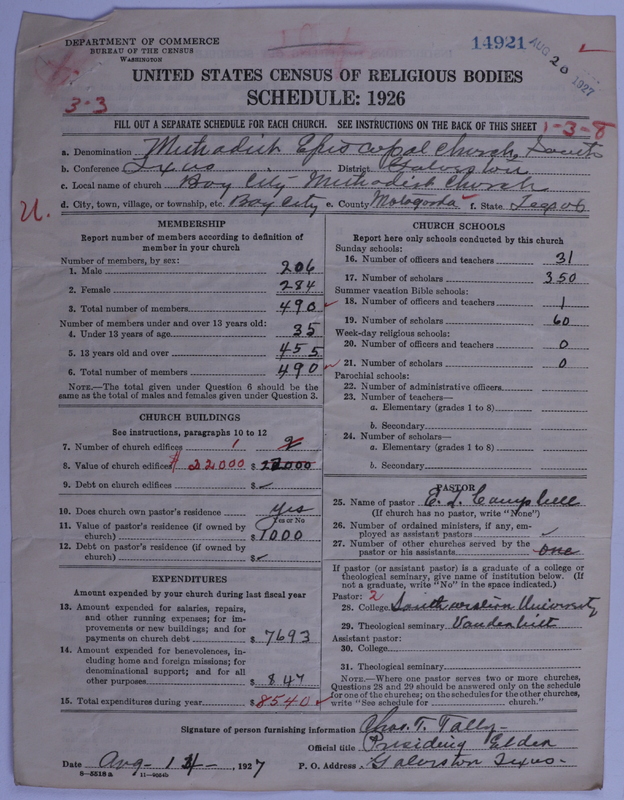 DEPARTMENT OF COMMERCE
BUREAU OF THE CENSUS
WASHINGTON
14921
AUG 20 1927
UNITED STATES CENSUS OF RELIGIOUS BODIES
SCHEDULE: 1926
3-3
FILL OUT A SEPARATE SCHEDULE FOR EACH CHURCH. SEE INSTRUCTIONS ON THE BACK OF THIS SHEET 1-3-8
a. Denomination Methodist Episcopal Church, South
b. Conference Texas District Galveston
c. Local name of church Bay City Methodist Church
d. City, town, village, or township, etc. Bay City e. County Matagorda f. State Texas
U.
MEMBERSHIP
Report number of members according to definition of
member in your church
Number of members, by sex:
1. Male 206
2. Female 284
3. Total number of members 490
Number of members under and over 13 years old:
4. Under 13 years of age 35
5. 13 years old and over 455
6. Total number of members 490
NOTE.—The total given under Question 6 should be the
same as the total of males and females given under Question 3.
CHURCH BUILDINGS
See instructions, paragraphs 10 to 12
7. Number of church edifices 1 2
8. Value of church edifices $22000 $ 22000
9. Debt on church edifices $
10. Does church own pastor's residence yes
Yes or No
11. Value of pastor's residence (if owned by
church) $ 1000
12. Debt on pastor's residence (if owned by
church) $
EXPENDITURES
Amount expended by your church during last fiscal year
13. Amount expended for salaries, repairs,
and other running expenses; for im-
provements or new buildings; and for
payments on church debt $ 7693
14. Amount expended for benevolences, in-
cluding home and foreign missions; for
denominational support; and for all
other purposes $ 847
15. Total expenditures during year $ 8540
CHURCH SCHOOLS
Report here only schools conducted by this church
Sunday schools:
16. Number of officers and teachers 31
17. Number of scholars 350
Summer vacation Bible schools:
18. Number of officers and teachers 1
19. Number of scholars 60
Week-day religious schools:
20. Number of officers and teachers 0
21. Number of scholars 0
Parochial schools:
22. Number of administrative officers
23. Number of teachers—
a. Elementary (grades 1 to 8)
b. Secondary
24. Number of scholars—
a. Elementary (grades 1 to 8)
b. Secondary
PASTOR
25. Name of pastor E. L. Campbell
(If church has no pastor, write "None")
26. Number of ordained ministers, if any, em-
ployed as assistant pastors
27. Number of other churches served by the
pastor or his assistants one
If pastor (or assistant pastor) is a graduate of a college or
theological seminary, give name of institution below. (If
not a graduate, write "No" in the space indicated.)
Pastor: 2
28. College Southwestern University
29. Theological seminary Vanderbilt
Assistant pastor:
30. College
31. Theological seminary
NOTE.—Where one pastor serves two or more churches,
Questions 28 and 29 should be answered only on the schedule
for one of the churches; on the schedules for the other churches,
write "See schedule for church."
Signature of person furnishing information Chas. T. Tally
Official title Presiding Elder
Date Aug- 14, 1927 P. O. Address Galveston Texas.
8-5518a 11-9054b